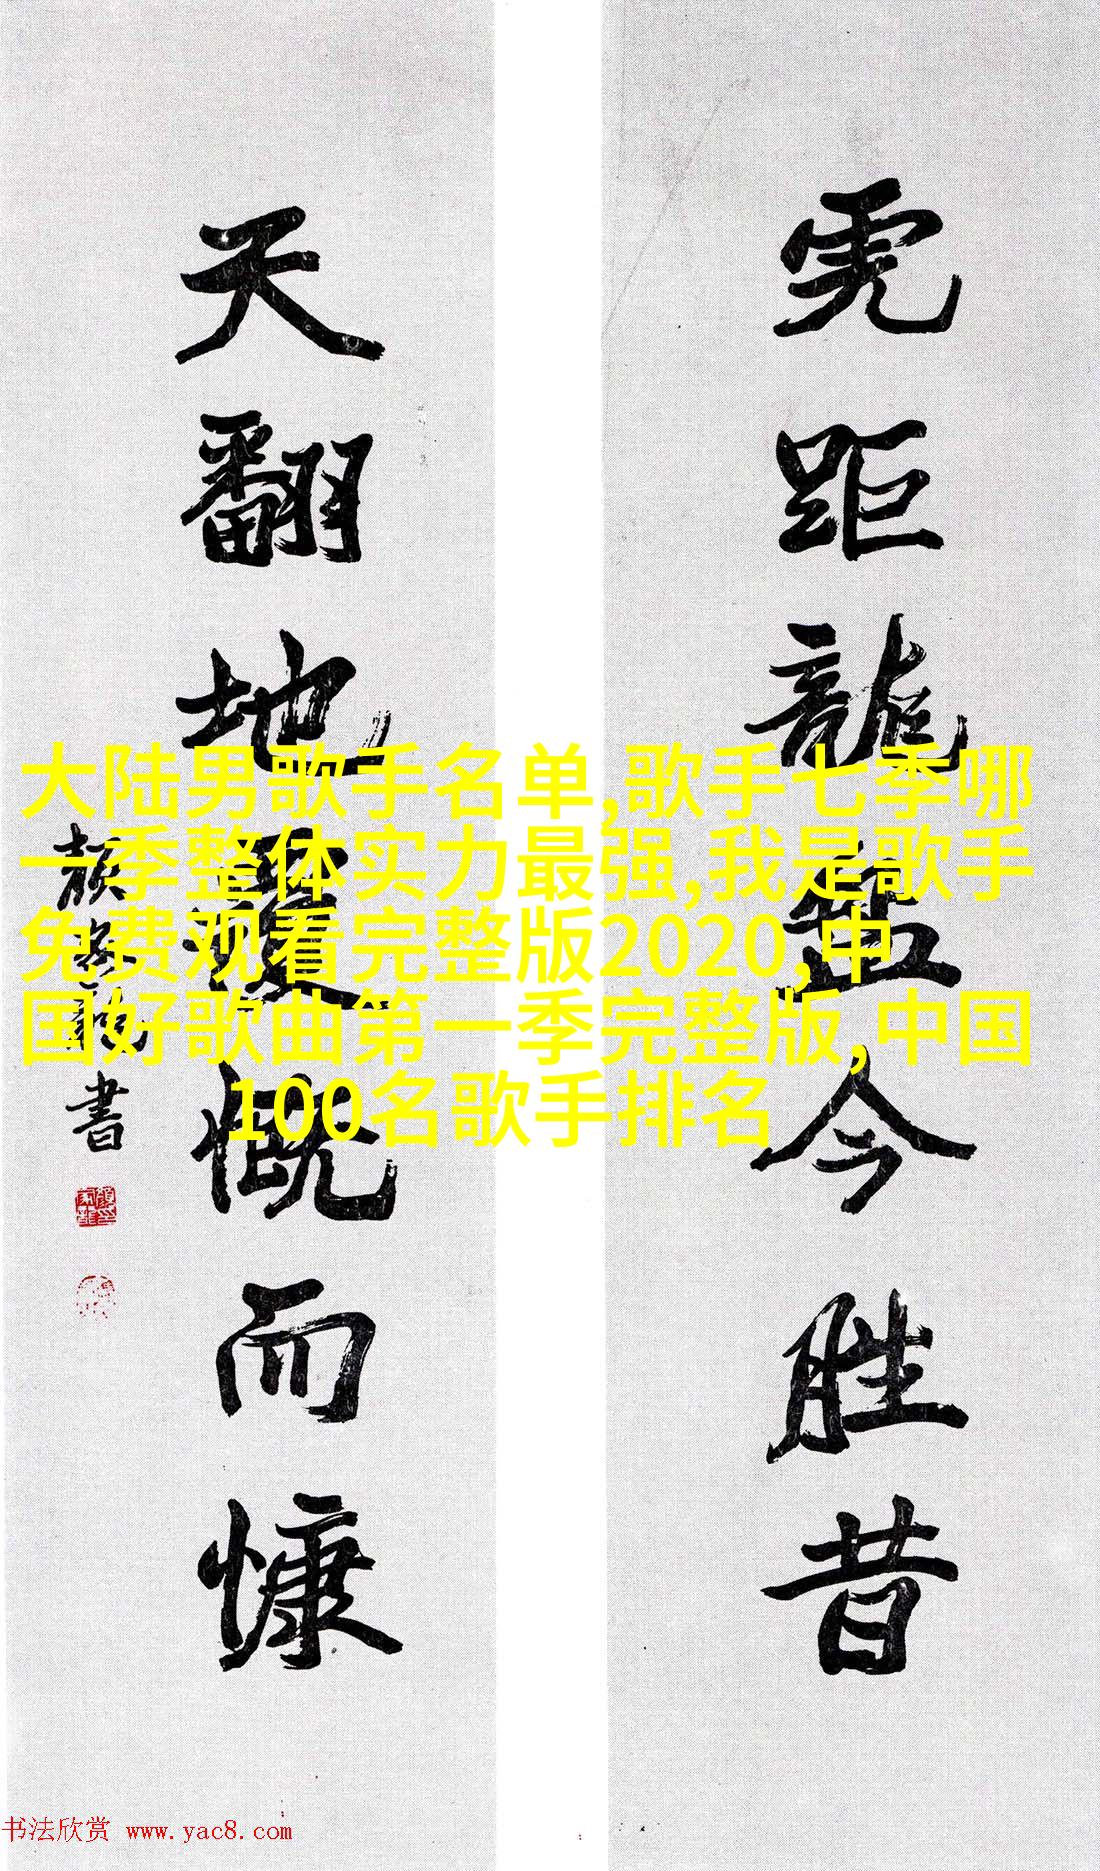 虎距龍盤今胜昔
天翻地覆慨而慷
顏家龍書
大陆男歌手名单,歌手七季哪
一季整体实力最强,我是歌手
免费观看完整版2020,中
国好歌曲第一季完整版,中国
100名歌手排名
书法欣赏 www.yac8.com